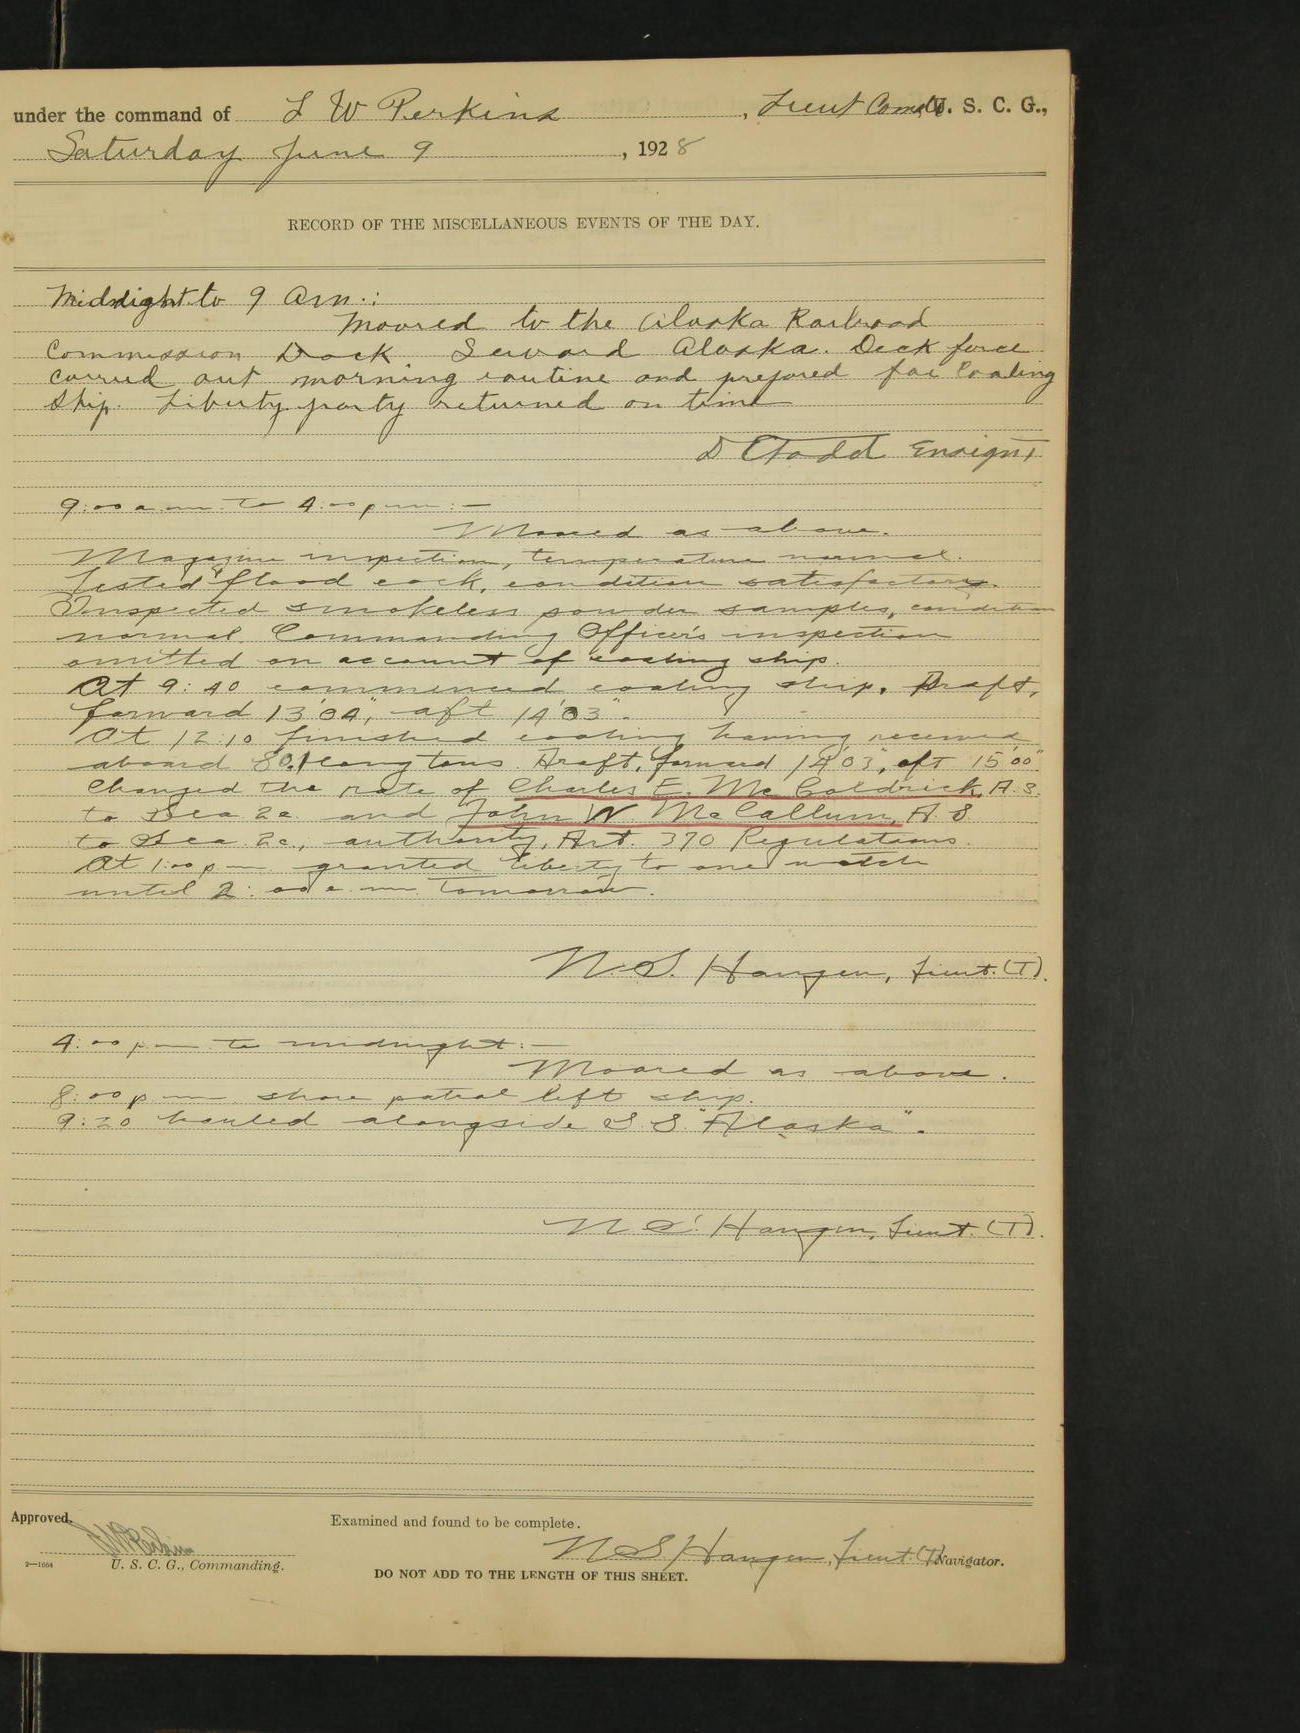 under the command of L W Perkins, Lieut Comdr U. S. C. G.,
Saturday June 9, 1928
RECORD OF THE MISCELLANEOUS EVENTS OF THE DAY.
Midnight to 9 Am.:
Moored to the Alaska Railroad
Commission Dock Seward Alaska. Deck force
carried out morning routine and prepared for Coaling
Ship. Liberty party returned on time
D C Todd Ensign T
9:00 a.m. to 4:00 p.m.:-
Moored as above.
Magazine inspection, temperature normal.
Tested flood cock, condition satisfactory.
Inspected smokeless powder samples, condition
normal. Commanding Officer's inspection
omitted on account of coaling ship.
At 9:40 commenced coaling ship. Draft,
forward 13'04", aft 14'03".
At 12:10 finished coaling having received
aboard 80.1 long tons. Draft, forward 14'03", aft 15'00"
Changed the rate of Charles E. McGoldrick, A.S.
to Sea 2c and John W. McCallum, A.S
to Sea 2c., authority, Art. 370 Regulations.
At 1:00 p m granted liberty to one watch
until 2:00 a.m. tomorrow.
N. S. Haugen, Lieut. (T).
4:00 p m to midnight:-
Moored as above.
8:00 p m shore patrol left ship.
9:20 hauled alongside S S "Alaska".
N S. Haugen, Lieut. (T).
Approved.
Examined and found to be complete.
L W Perkins
N S Haugen, Lieut. (T) Navigator.
2—1664
U. S. C. G., Commanding.
DO NOT ADD TO THE LENGTH OF THIS SHEET.